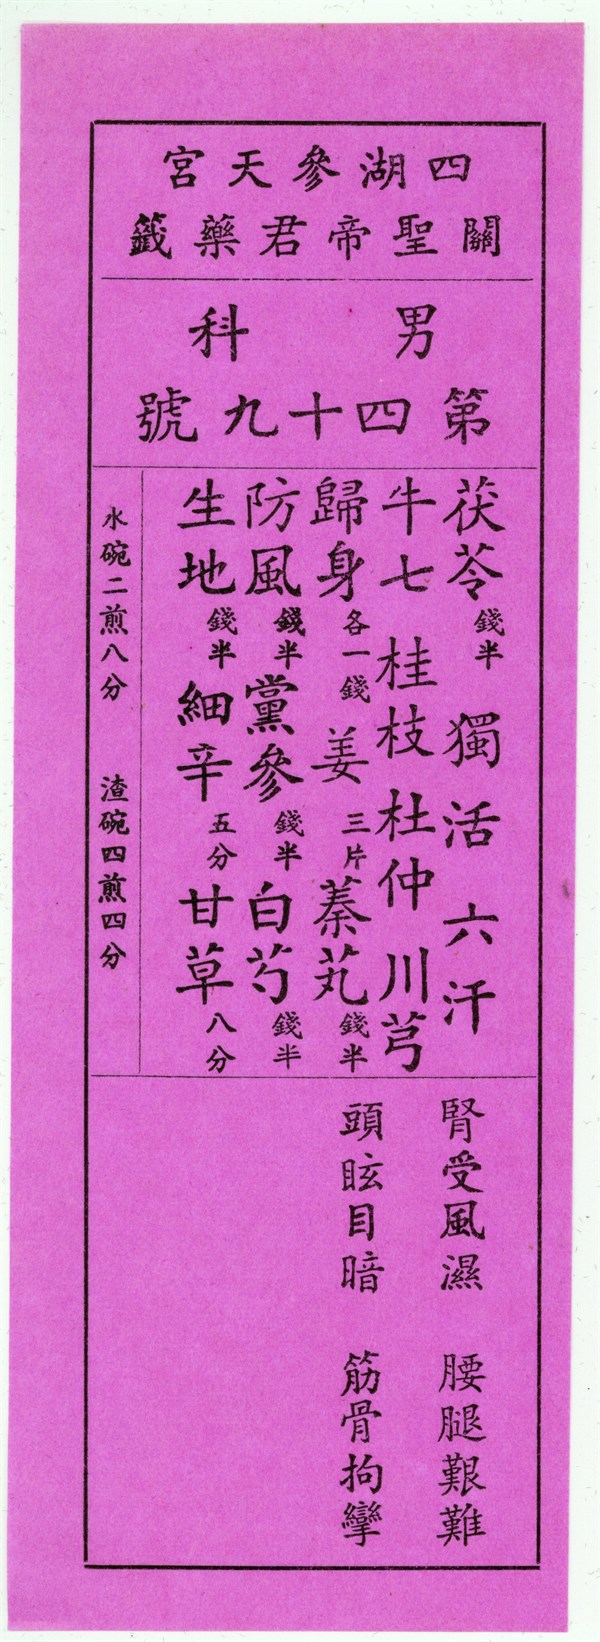 四湖參天宮
關聖帝君藥籤
男科
第四十九號
茯苓錢半 獨活 六汗
牛七 桂枝 杜仲 川芎
歸身各一錢 姜三片 蓁艽錢半
防風錢半 黨參錢半 白芍錢半
生地錢半 細辛五分 甘草八分
水碗二煎八分 渣碗四煎四分
腎受風濕 腰腿艱難
頭眩目暗 筋骨拘攣